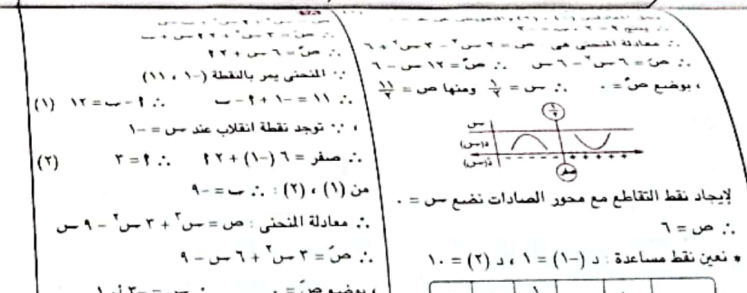 ∴ معادلة المنحنى هى : ص = ٢ س٣ - ٣ س٢ + ٦
∴ صَ = ٦ س٢ - ٦ س ∴ صً = ١٢ س - ٦
، بوضع صً = ٠ ∴ س = ١/٢ ومنها ص = ١١/٢
١/٢
س
د(س)
دً(س)
صفر
لإيجاد نقط التقاطع مع محور الصادات نضع س = ٠
∴ ص = ٦
• نعين نقط مساعدة : د (-١) = ١ ، د (٢) = ١٠
∴ صً = ٦ س + ٢ ٢
∵ المنحنى يمر بالنقطة (-١ ، ١١)
∴ ١١ = -١ + ٢ - ب ∴ ٢ - ب = ١٢ (١)
، ∵ توجد نقطة انقلاب عند س = -١
∴ صفر = ٦ (-١) + ٢ ٢ ∴ ٢ = ٣ (٢)
من (١) ، (٢) : ∴ ب = -٩
∴ معادلة المنحنى : ص = س٣ + ٣ س٢ - ٩ س
∴ صَ = ٣ س٢ + ٦ س - ٩